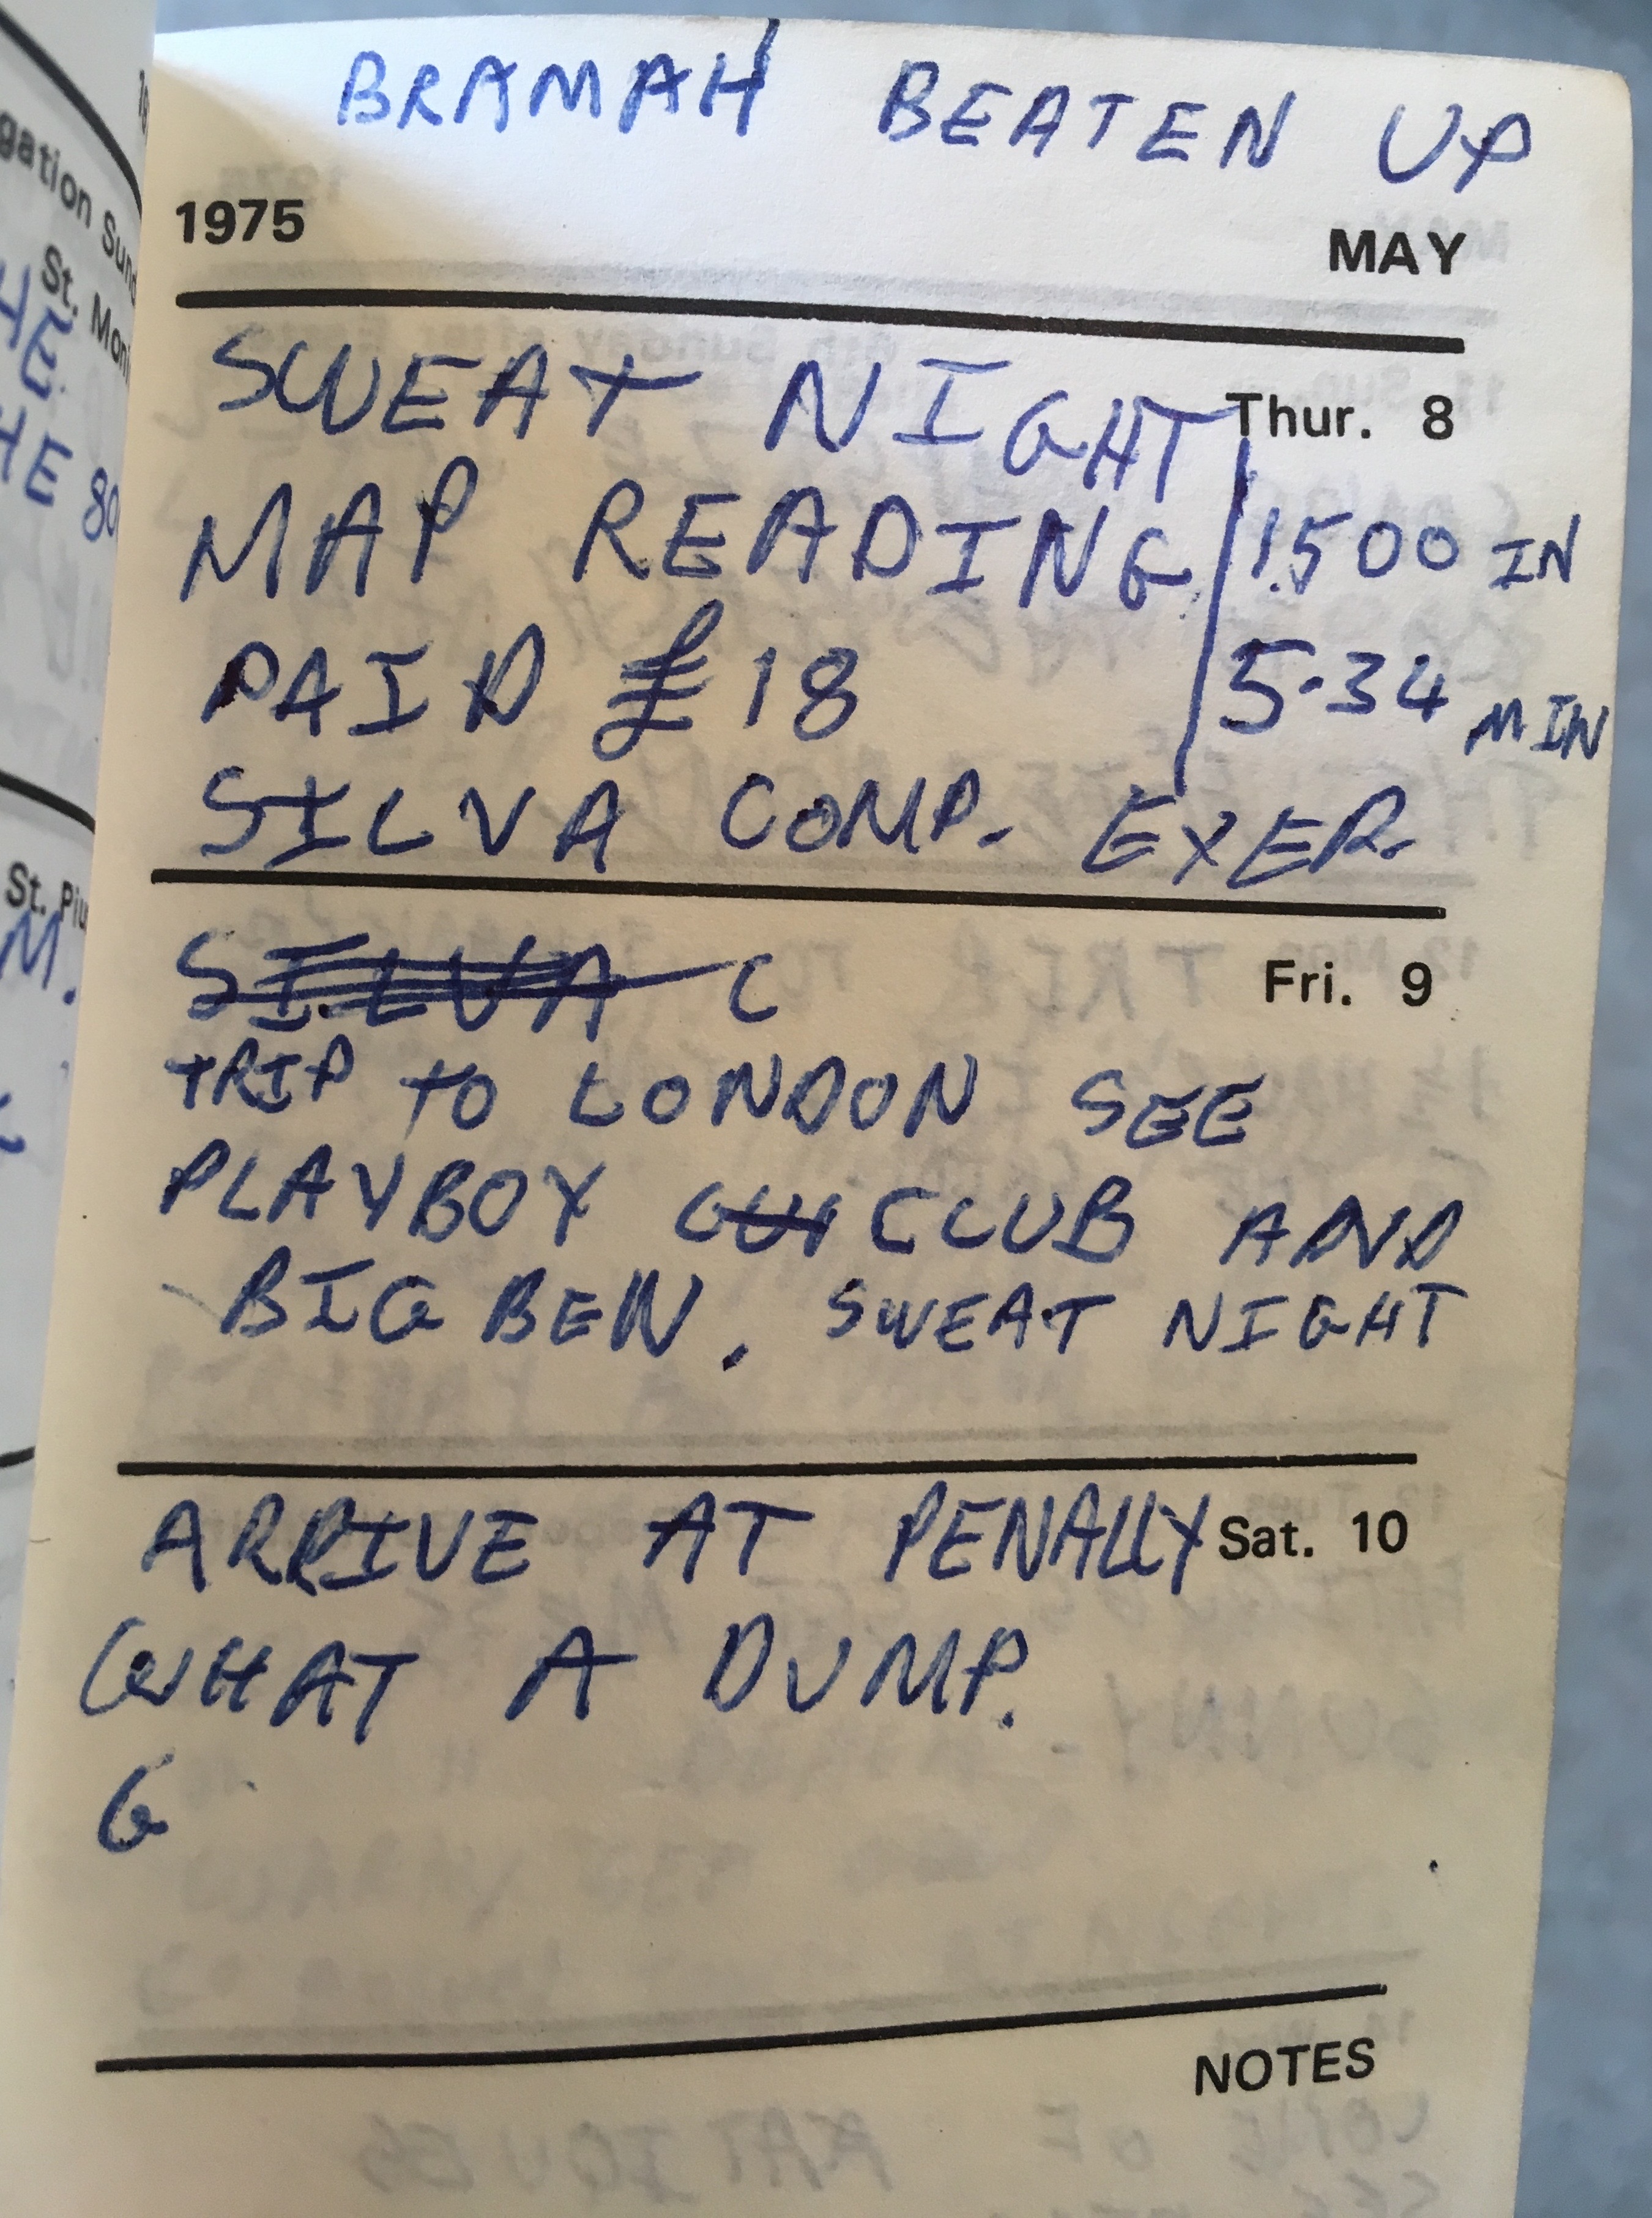 BRAMAH BEATEN UP
1975 MAY
SWEAT NIGHT Thur. 8
MAP READING 1500 IN
PAID £18 5.34 MIN
SILVA COMP. EXER.
SILVA C Fri. 9
TRIP TO LONDON SEE
PLAYBOY CLUB AND
BIG BEN. SWEAT NIGHT
ARRIVE AT PENALLY Sat. 10
WHAT A DUMP.
G
NOTES
gation Sund
St. Moni
HE
HE 80
St. Piu
M.